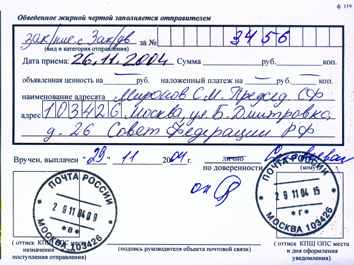 ф 119
Обведенное жирной чертой заполняется отправителем
за № 3456
(вид и категория отправления)
Дата приема: 26.11.2004 Сумма руб. коп.
объявленная ценность на руб. наложенный платеж на руб. коп.
наименование адресата Миронов С.М. Председ СФ
адрес 103426 Москва, ул. Б. Дмитровка
д. 26 Совет Федерации РФ
Вручен, выплачен "29" 11 2004 г. лично
по доверенности (кому)
ПОЧТА РОССИИ
29 11 04 09
МОСКВА 103426
ПОЧТА РОССИИ
29 11 04 15
МОСКВА 103426
( оттиск КПШ ОПС места
назначения
поступления отправления)
(подпись руководителя объекта почтовой связи)
( оттиск КПШ ОПС места
и дня оформления
уведомления)